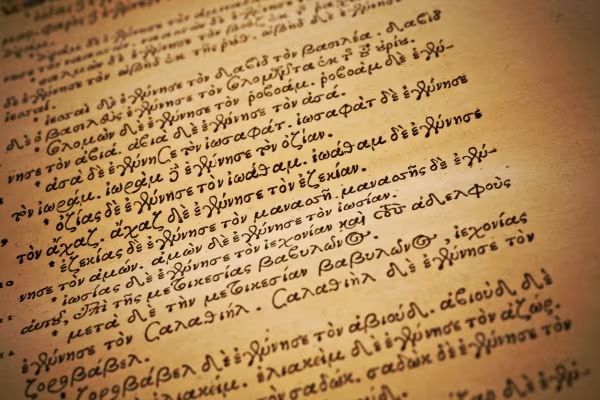 δὲ ἐγέννησε τὸν ὠβὴδ ἐκ τῆς ῥούθ. ὠβὴδ δὲ ἐγέννησε τὸν
ἰεσσαί.
ἰεσσαὶ δὲ ἐγέννησε τὸν δαβὶδ τὸν βασιλέα. δαβὶδ
δὲ ὁ βασιλεὺς ἐγέννησε τὸν σολομῶντα ἐκ τῆς τοῦ οὐρίου.
σολομὼν δὲ ἐγέννησε τὸν ῥοβοάμ. ῥοβοὰμ δὲ ἐγέν-
νησε τὸν ἀβιά. ἀβιὰ δὲ ἐγέννησε τὸν ἀσά.
ἀσὰ δὲ ἐγέννησε τὸν ἰωσαφάτ. ἰωσαφὰτ δὲ ἐγέννησε
τὸν ἰωράμ. ἰωρὰμ δὲ ἐγέννησε τὸν ὀζίαν.
ὀζίας δὲ ἐγέννησε τὸν ἰωάθαμ. ἰωάθαμ δὲ ἐγέννησε
τὸν ἄχαζ. ἄχαζ δὲ ἐγέννησε τὸν ἐζεκίαν.
ἐζεκίας δὲ ἐγέννησε τὸν μανασσῆ. μανασσῆς δὲ ἐγέν-
νησε τὸν ἀμών. ἀμὼν δὲ ἐγέννησε τὸν ἰωσίαν.
ἰωσίας δὲ ἐγέννησε τὸν ἰεχονίαν καὶ τοὺς ἀδελφοὺς
αὐτοῦ, ἐπὶ τῆς μετοικεσίας βαβυλῶνος.
μετὰ δὲ τὴν μετοικεσίαν βαβυλῶνος, ἰεχονίας
ἐγέννησε τὸν σαλαθιήλ. σαλαθιὴλ δὲ ἐγέννησε τὸν
ζοροβάβελ.
ζοροβάβελ δὲ ἐγέννησε τὸν ἀβιούδ. ἀβιοὺδ δὲ
ἐλιακείμ. ἐλιακεὶμ δὲ ἐγέννησε τὸν ἀζώρ.
τὸν σαδώκ. σαδὼκ δὲ ἐγέννησε τὸν